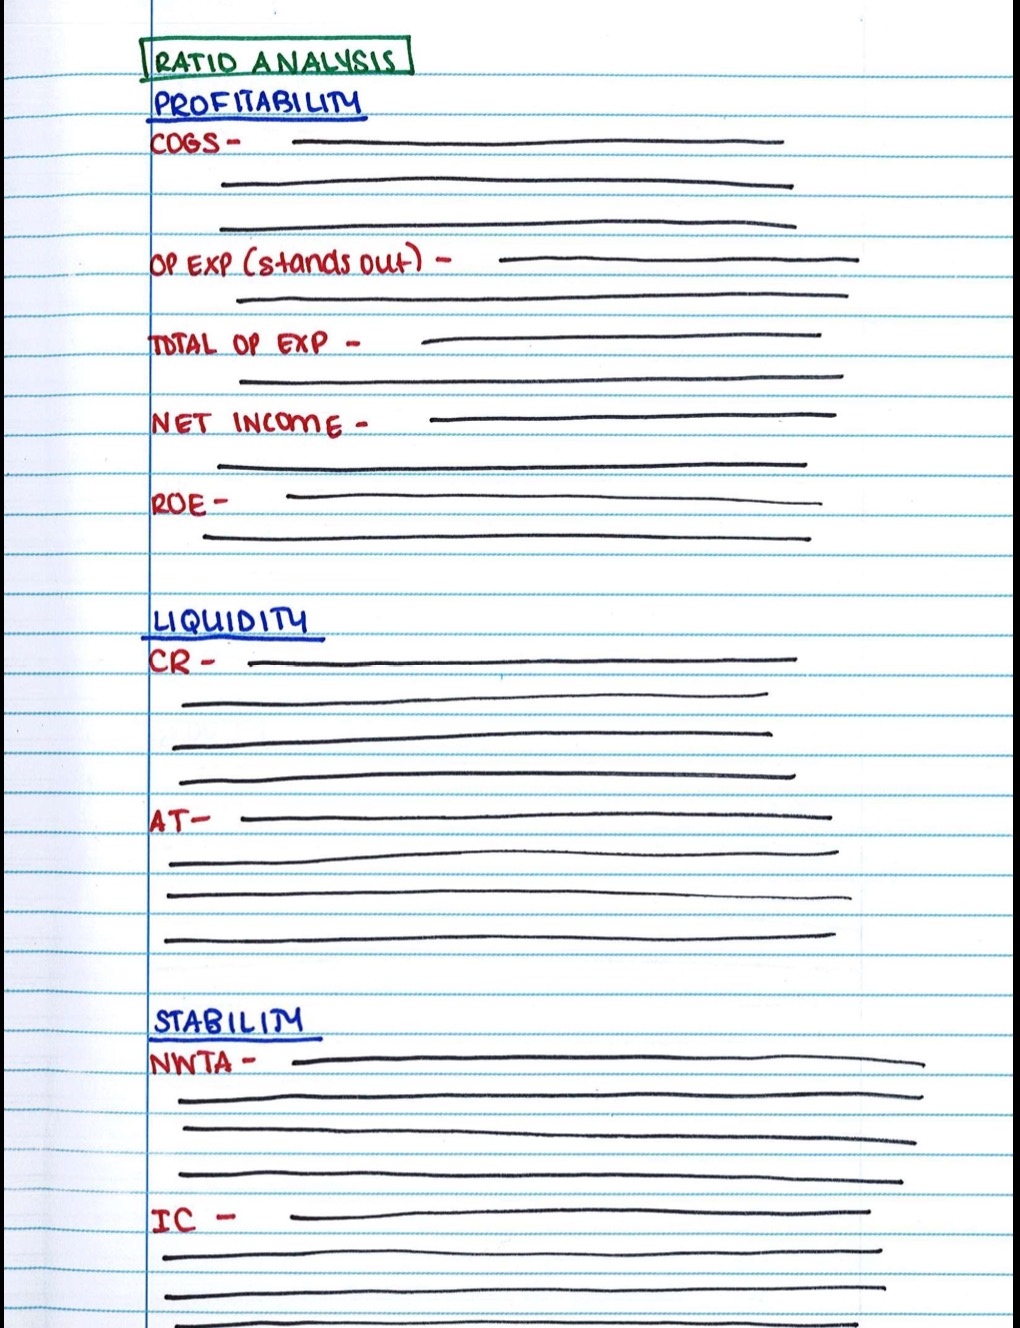 RATIO ANALYSIS
PROFITABILITY
COGS -
OP EXP (stands out) -
TOTAL OP EXP -
NET INCOME -
ROE -
LIQUIDITY
CR -
AT -
STABILITY
NWTA -
IC -